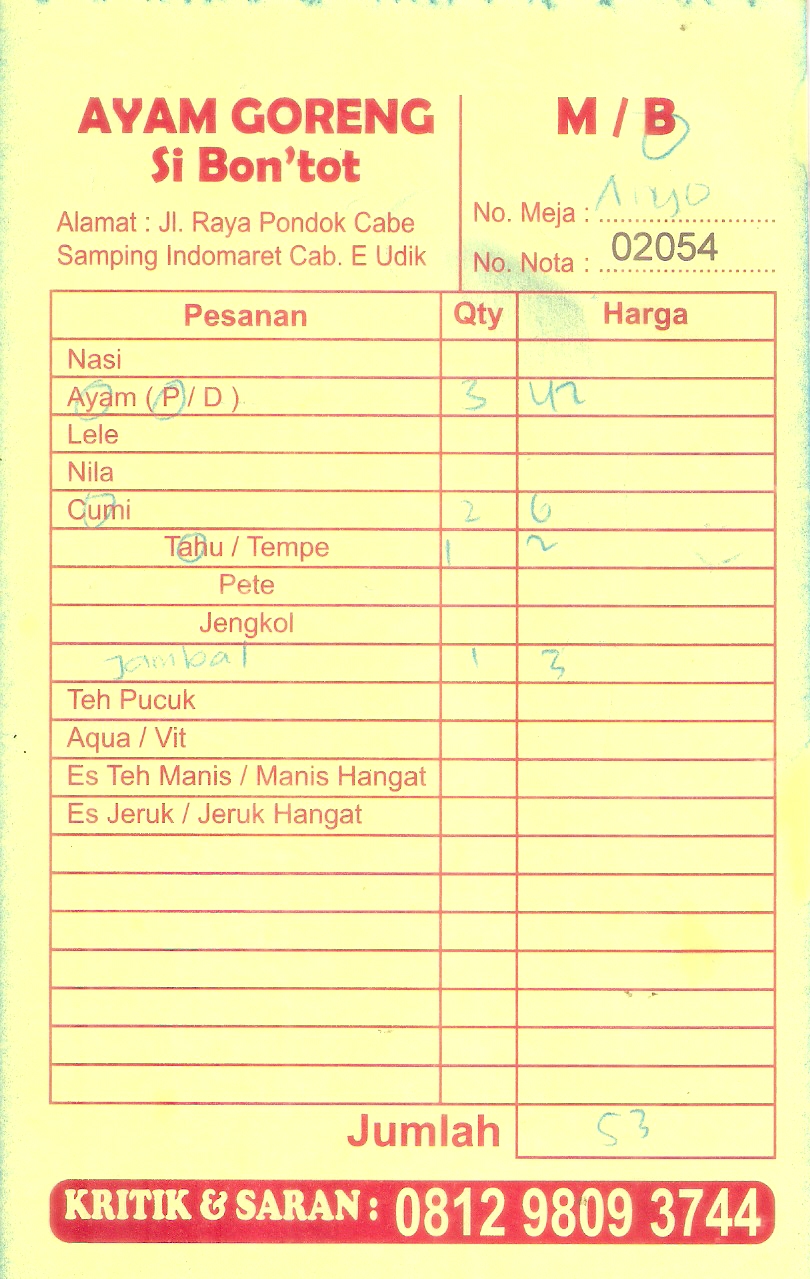 AYAM GORENG
Si Bon'tot
Alamat : Jl. Raya Pondok Cabe
Samping Indomaret Cab. E Udik
M / B
No. Meja :
No. Nota : 02054
Pesanan Qty Harga
Nasi
Ayam ( P / D ) 3 42
Lele
Nila
Cumi 2 6
Tahu / Tempe 1 2
Pete
Jengkol
Jambal 1 3
Teh Pucuk
Aqua / Vit
Es Teh Manis / Manis Hangat
Es Jeruk / Jeruk Hangat
Jumlah 53
KRITIK & SARAN : 0812 9809 3744